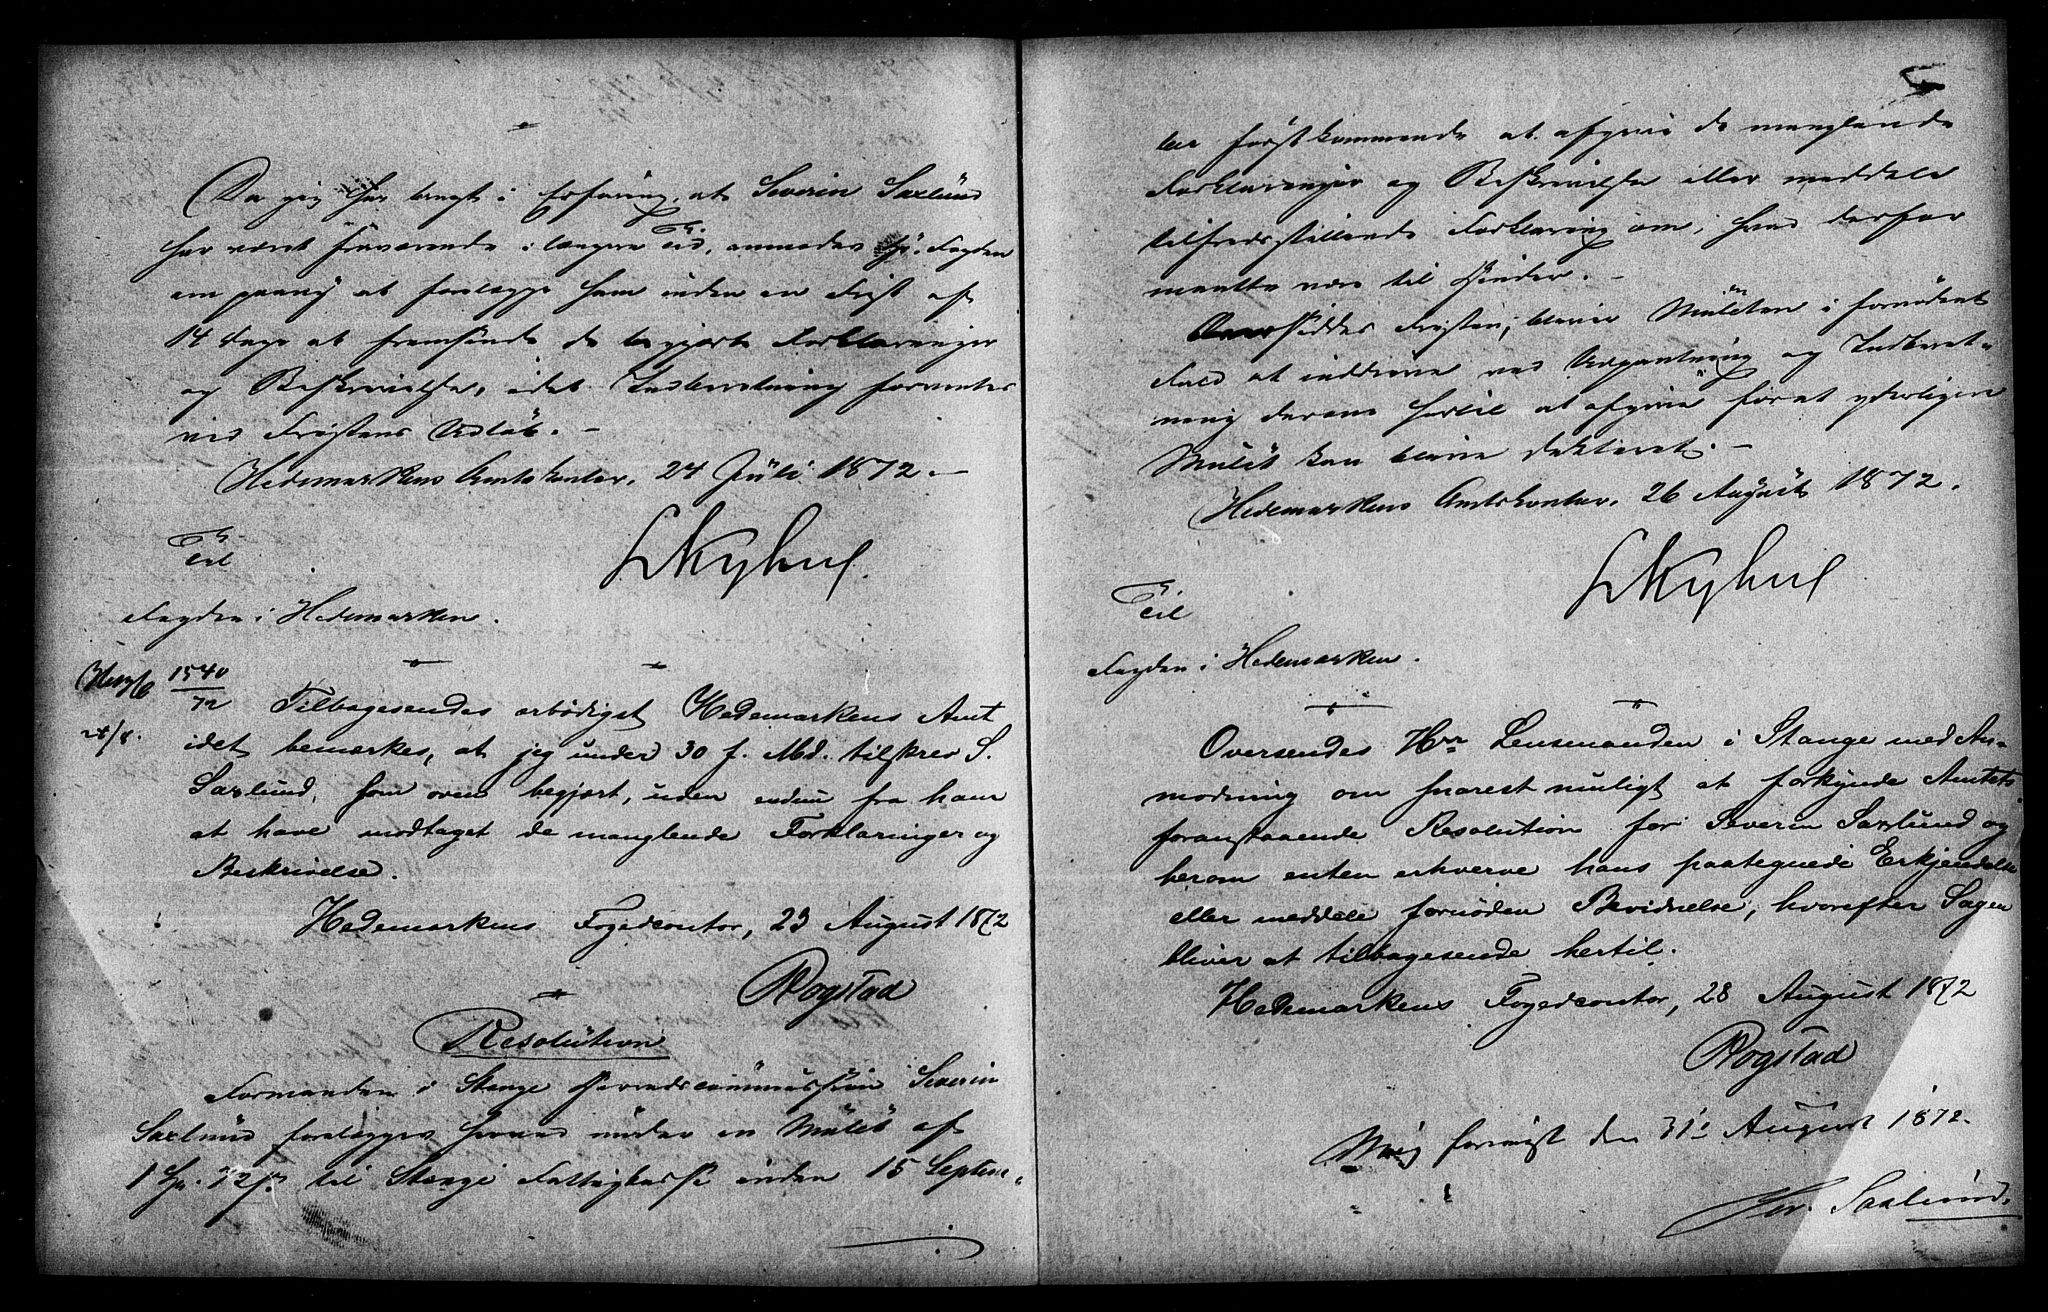 Da jeg har bragt i Erfaring, at Severin Saxlund
har været fraværende i længere Tid, anmodes Hr. Fogden
om paany at forelægge ham inden en Frist af
14 Dage at fremsende de begjærte Forklaringer
og Beskrivelse, idet Indberetning forventes
ved Fristens Udløb. –
Hedemarkens Amtskontor, 24 Juli 1872. –
Til
Fogden i Hedemarken.
1540
72
28/8.
Tilbagesendes ærbødigst Hedemarkens Amt
idet bemærkes, at jeg under 30 f. Md. tilskrev S.
Saxlund, som oven begjært, uden endnu fra ham
at have modtaget de manglende Forklaringer og
Beskrivelse.
Hedemarkens Fogedcontor, 23 August 1872
Rogstad
Resolution
Formanden i Stange Sundhedscommission Severin
Saxlund forelægges herved under en Mulct af
1 Sp. 72 til Stange Fattigkasse inden 15 Septem-
5
ber førstkommende at afgive de manglende
Forklaringer og Beskrivelse eller meddele
tilfredsstillende Forklaring om, hvad derfor
maatte være til Hinder. –
Oversiddes Fristen, bliver Mulcten i fornødent
Fald at inddrive ved Udpantning og Indberet-
ning derom hertil at afgive forat yderligere
Mulct kan blive dikteret. –
Hedemarkens Amtskontor, 26 August 1872.
Til
Fogden i Hedemarken.
Oversendes Hrr Lensmanden i Stange med An-
modning om snarest muligt at forkynde Amtets
foranstaaende Resolution for Severin Saxlund og
herom enten erhverve hans paategnede Erkjendelse
eller meddele fornøden Bevidnelse, hvorefter Sagen
bliver at tilbagesende hertil.
Hedemarkens Fogedcontor, 28 August 1872
Rogstad
Mig forevist den 31' August 1872.
Sev. Saxlund.